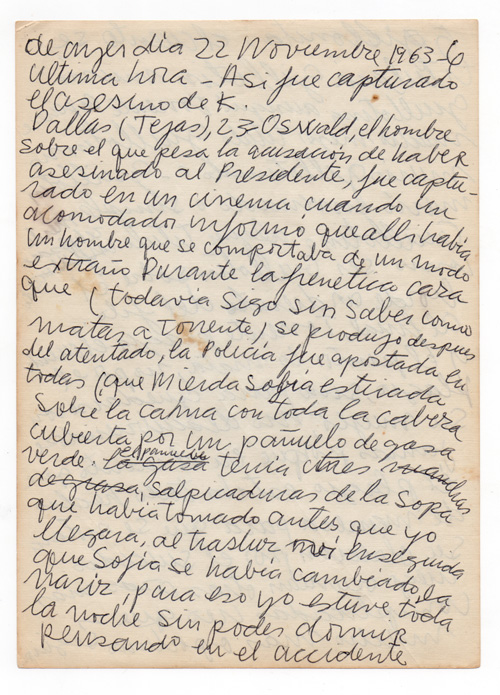 de ayer dia 22 Noviembre 1963-6
ultima hora - Asi fue capturado
el asesino de K.
Dallas (Tejas), 23 Oswald, el hombre
sobre el que pesa la acusación de haber
asesinado al Presidente, fue captu-
rado en un cinema cuando un
acomodador informó que alli habia
un hombre que se comportaba de un modo
extraño Durante la frenetica caza
que (todavia sigo sin saber como
matas a Torrente) se produjo despues
del atentado, la Policia fue apostada en
todas (que Mierda Sofia estirada
sobre la cama con toda la cabeza
cubierta por un pañuelo de gasa
verde. la gasa el pañuelo tenia tres manchas
de grasa, salpicaduras de la sopa
que habia tomado antes que yo
llegara, al trasluz vi enseguida
que Sofia se habia cambiado la
nariz, para eso yo estuve toda
la noche sin poder dormir
pensando en el accidente